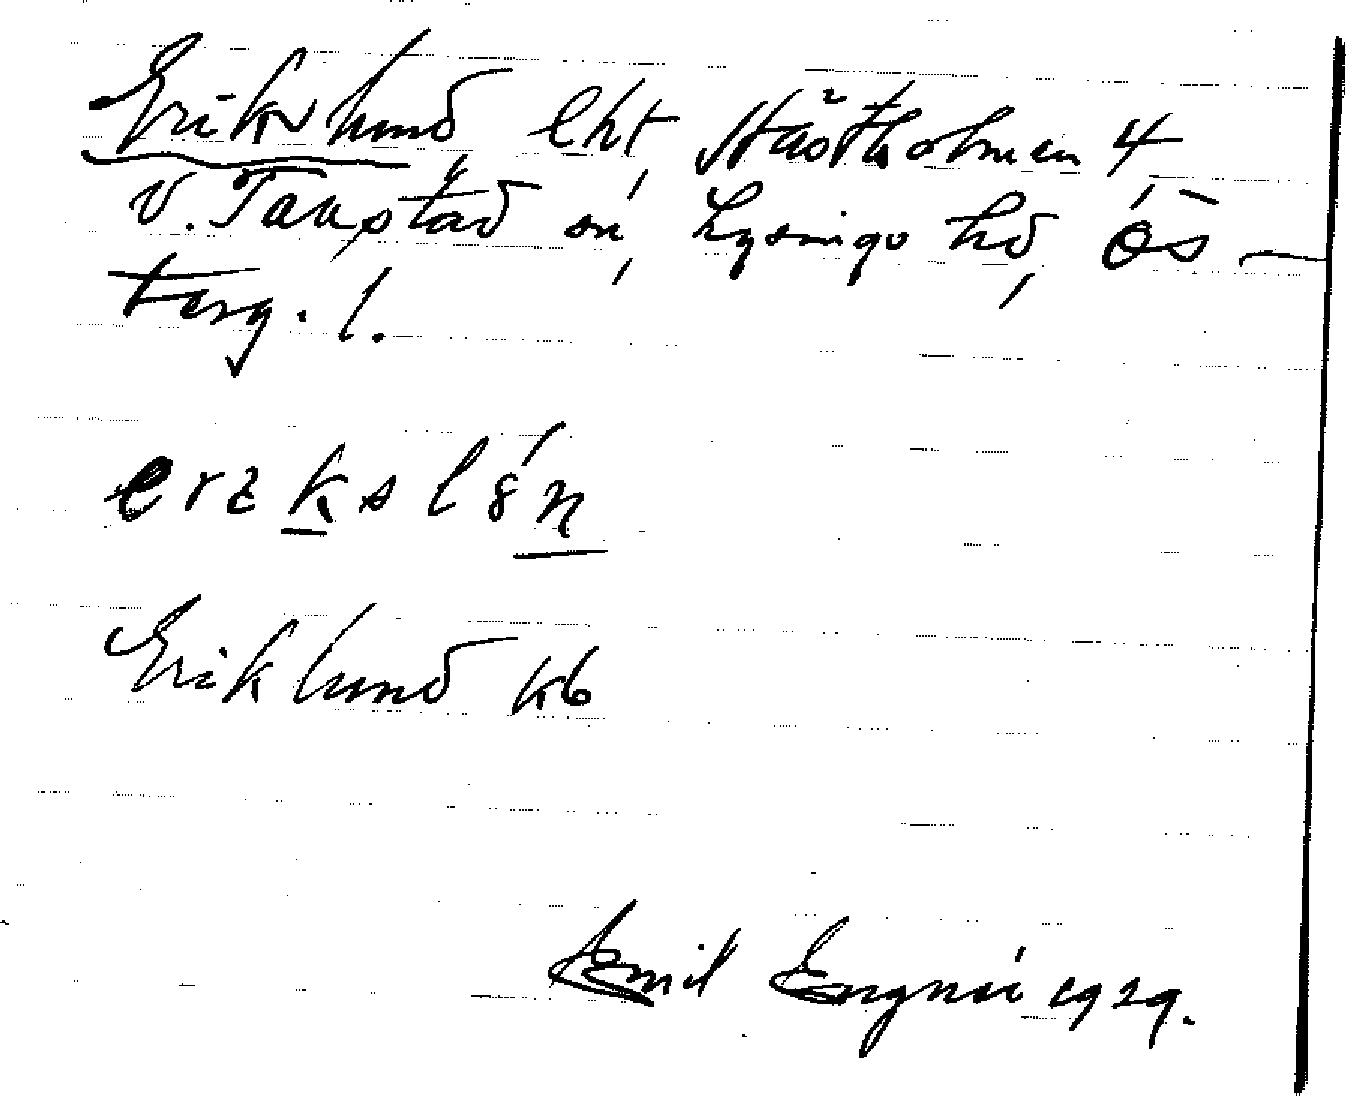 Erikslund lht, Hästholmen 4
V. Tollstad sn, Lysings hd, Ös-
terg. l.
erikslun
Eriklund kb
Emil Engnér 1929.